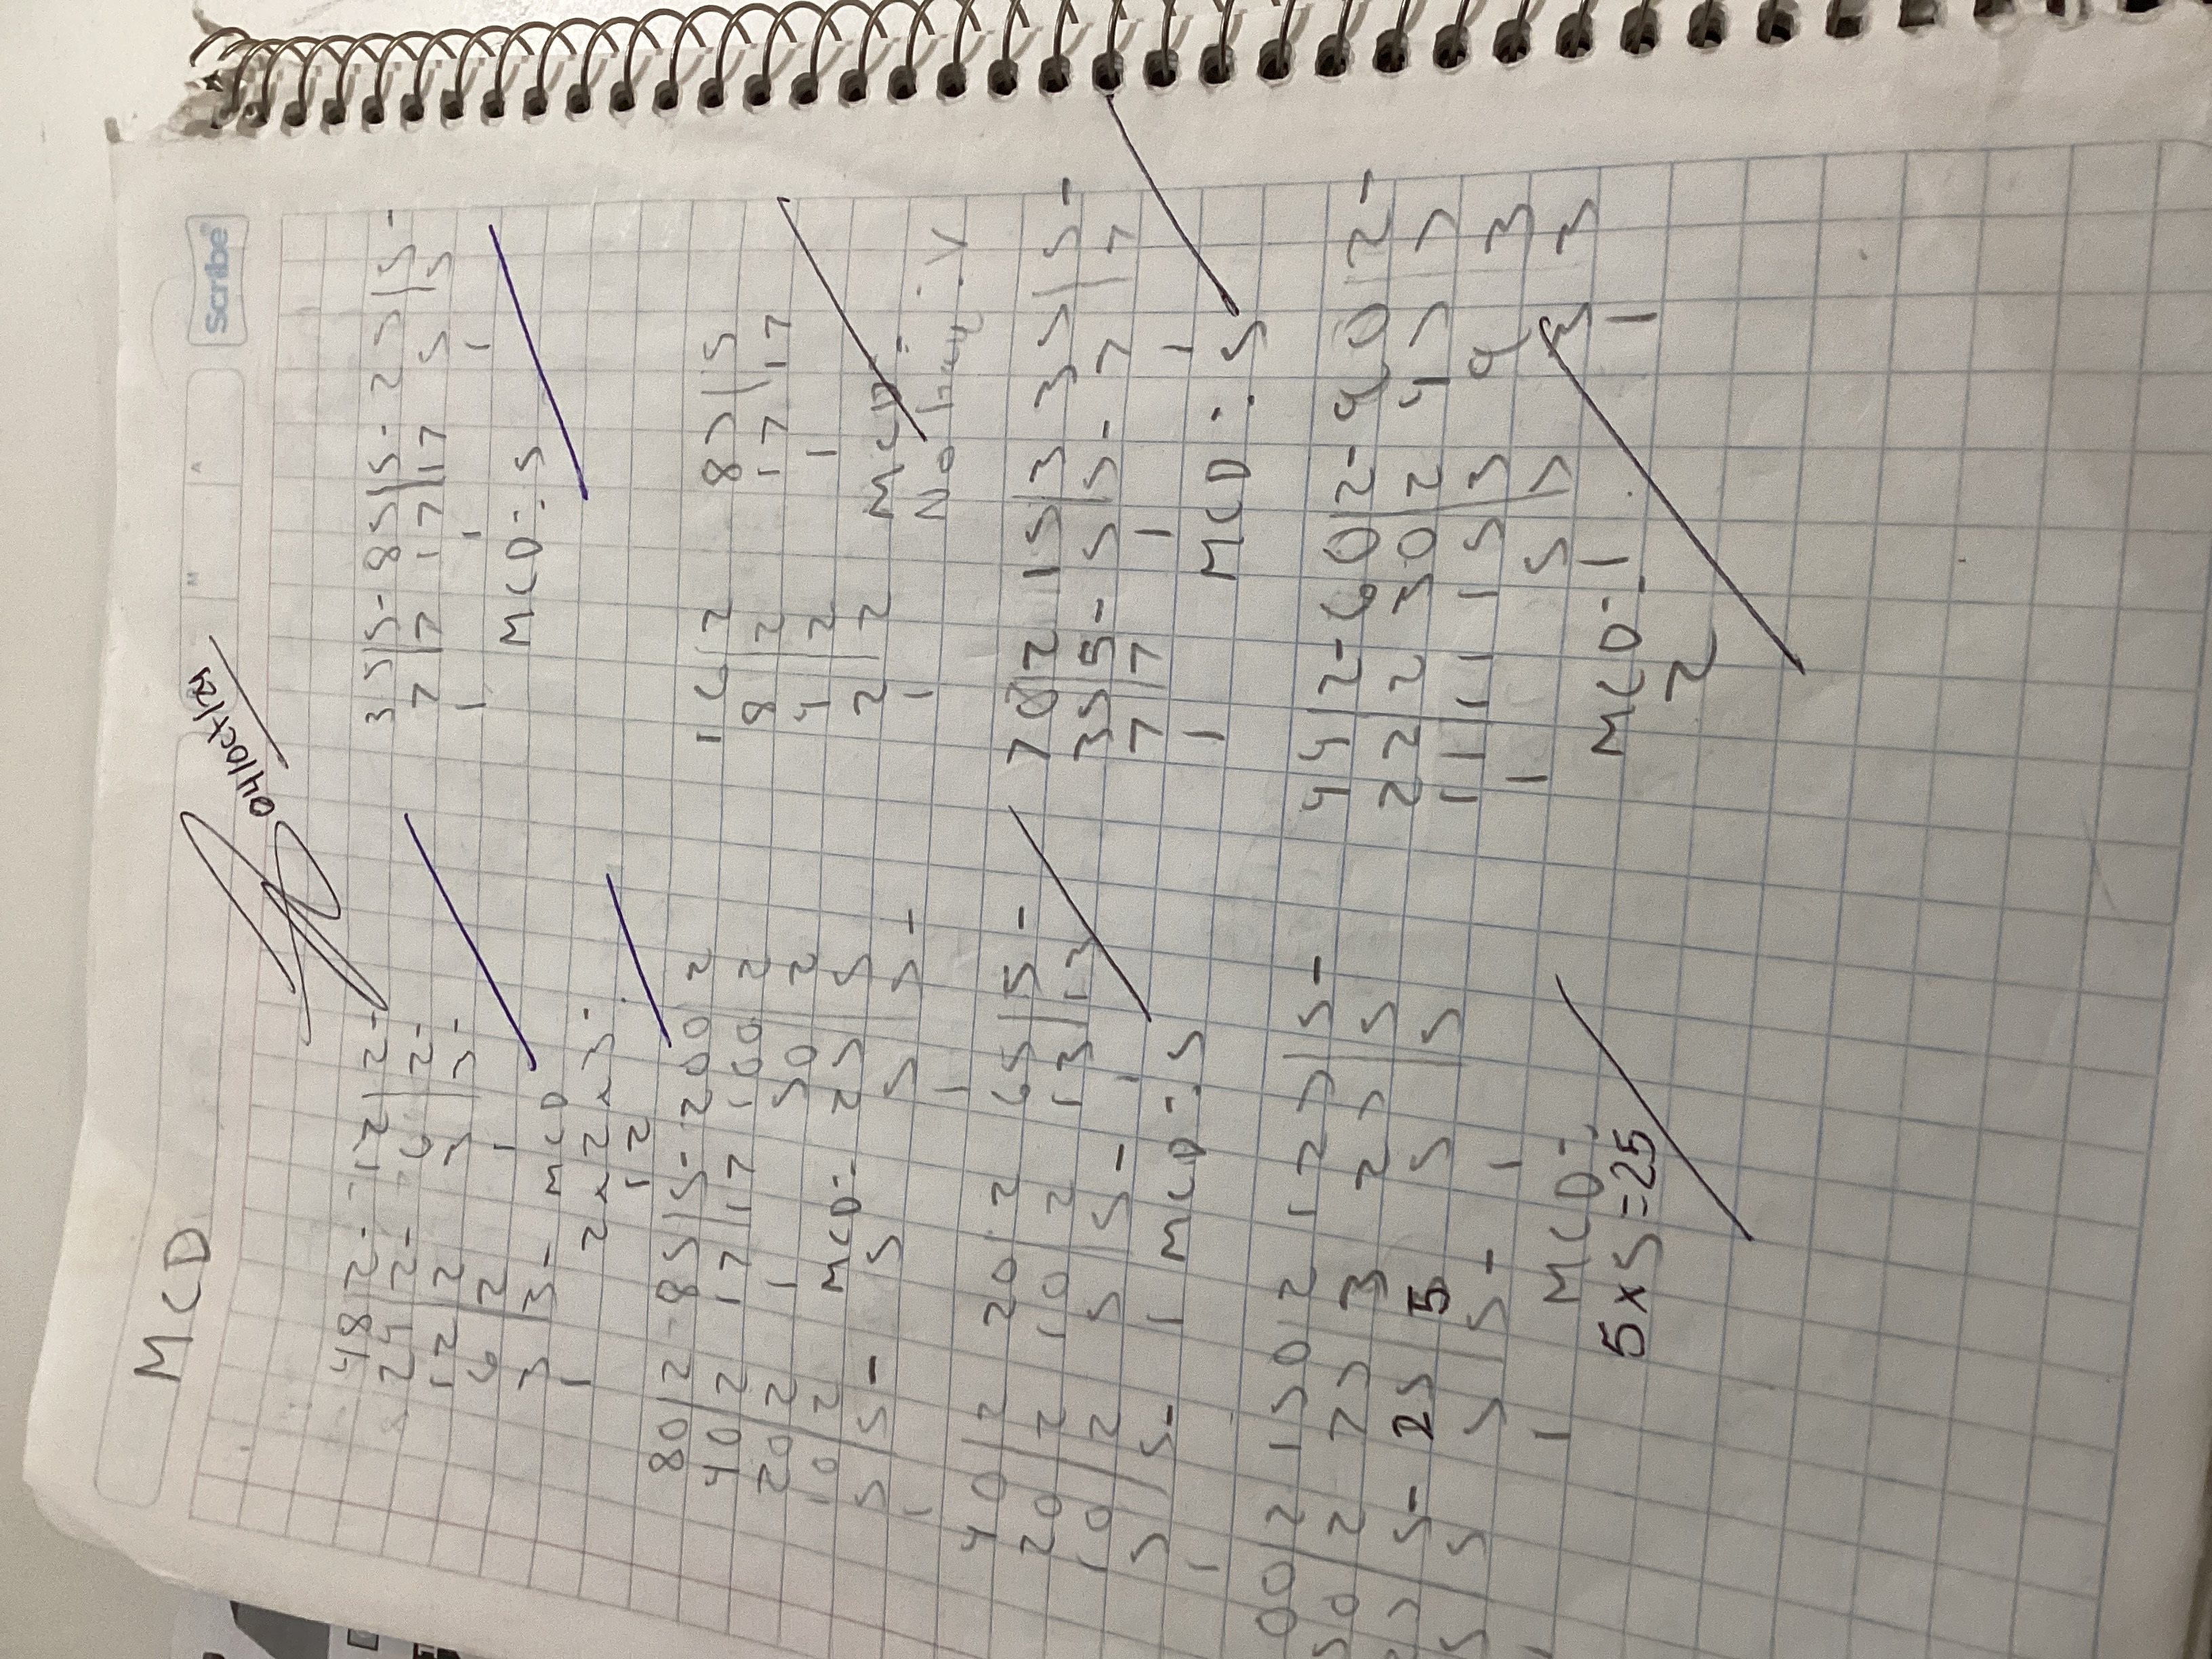 MCD
Scribe
04/oct/24
48|2- 12|2-
24|2- 6|2-
12|2 3|3-
6|2 1
3|3-
1
MCD
2x2x3.
12
35|5- 85|5- 25|5-
7|7 17|17 5|5
1 1 1
MCD: 5
80|2 85|5- 200|2
40|2 17|17 100|2
20|2 1 50|2
10|2 25|5
5|5- 5|5-
1 1
MCD:
5
16|2 85|5
8|2 17|17
4|2 1
2|2
1
MCD:
No hay
40|2 20|2 65|5-
20|2 10|2 13|13
10|2 5|5- 1
5|5- 1
1
MCD: 5
70|2 15|3 35|5-
35|5- 5|5- 7|7
7|7 1 1
1
MCD: 5
00|2 150|2 125|5-
50|2 75|3 25|5
5- 25|5 5|5
5|5 5|5- 1
1 1
MCD:
5x5=25
44|2- 60|2- 90|2-
22|2 30|2 45|5
11|11 15|3 9|3
1 5|5 3|3
1 1
MCD:
2